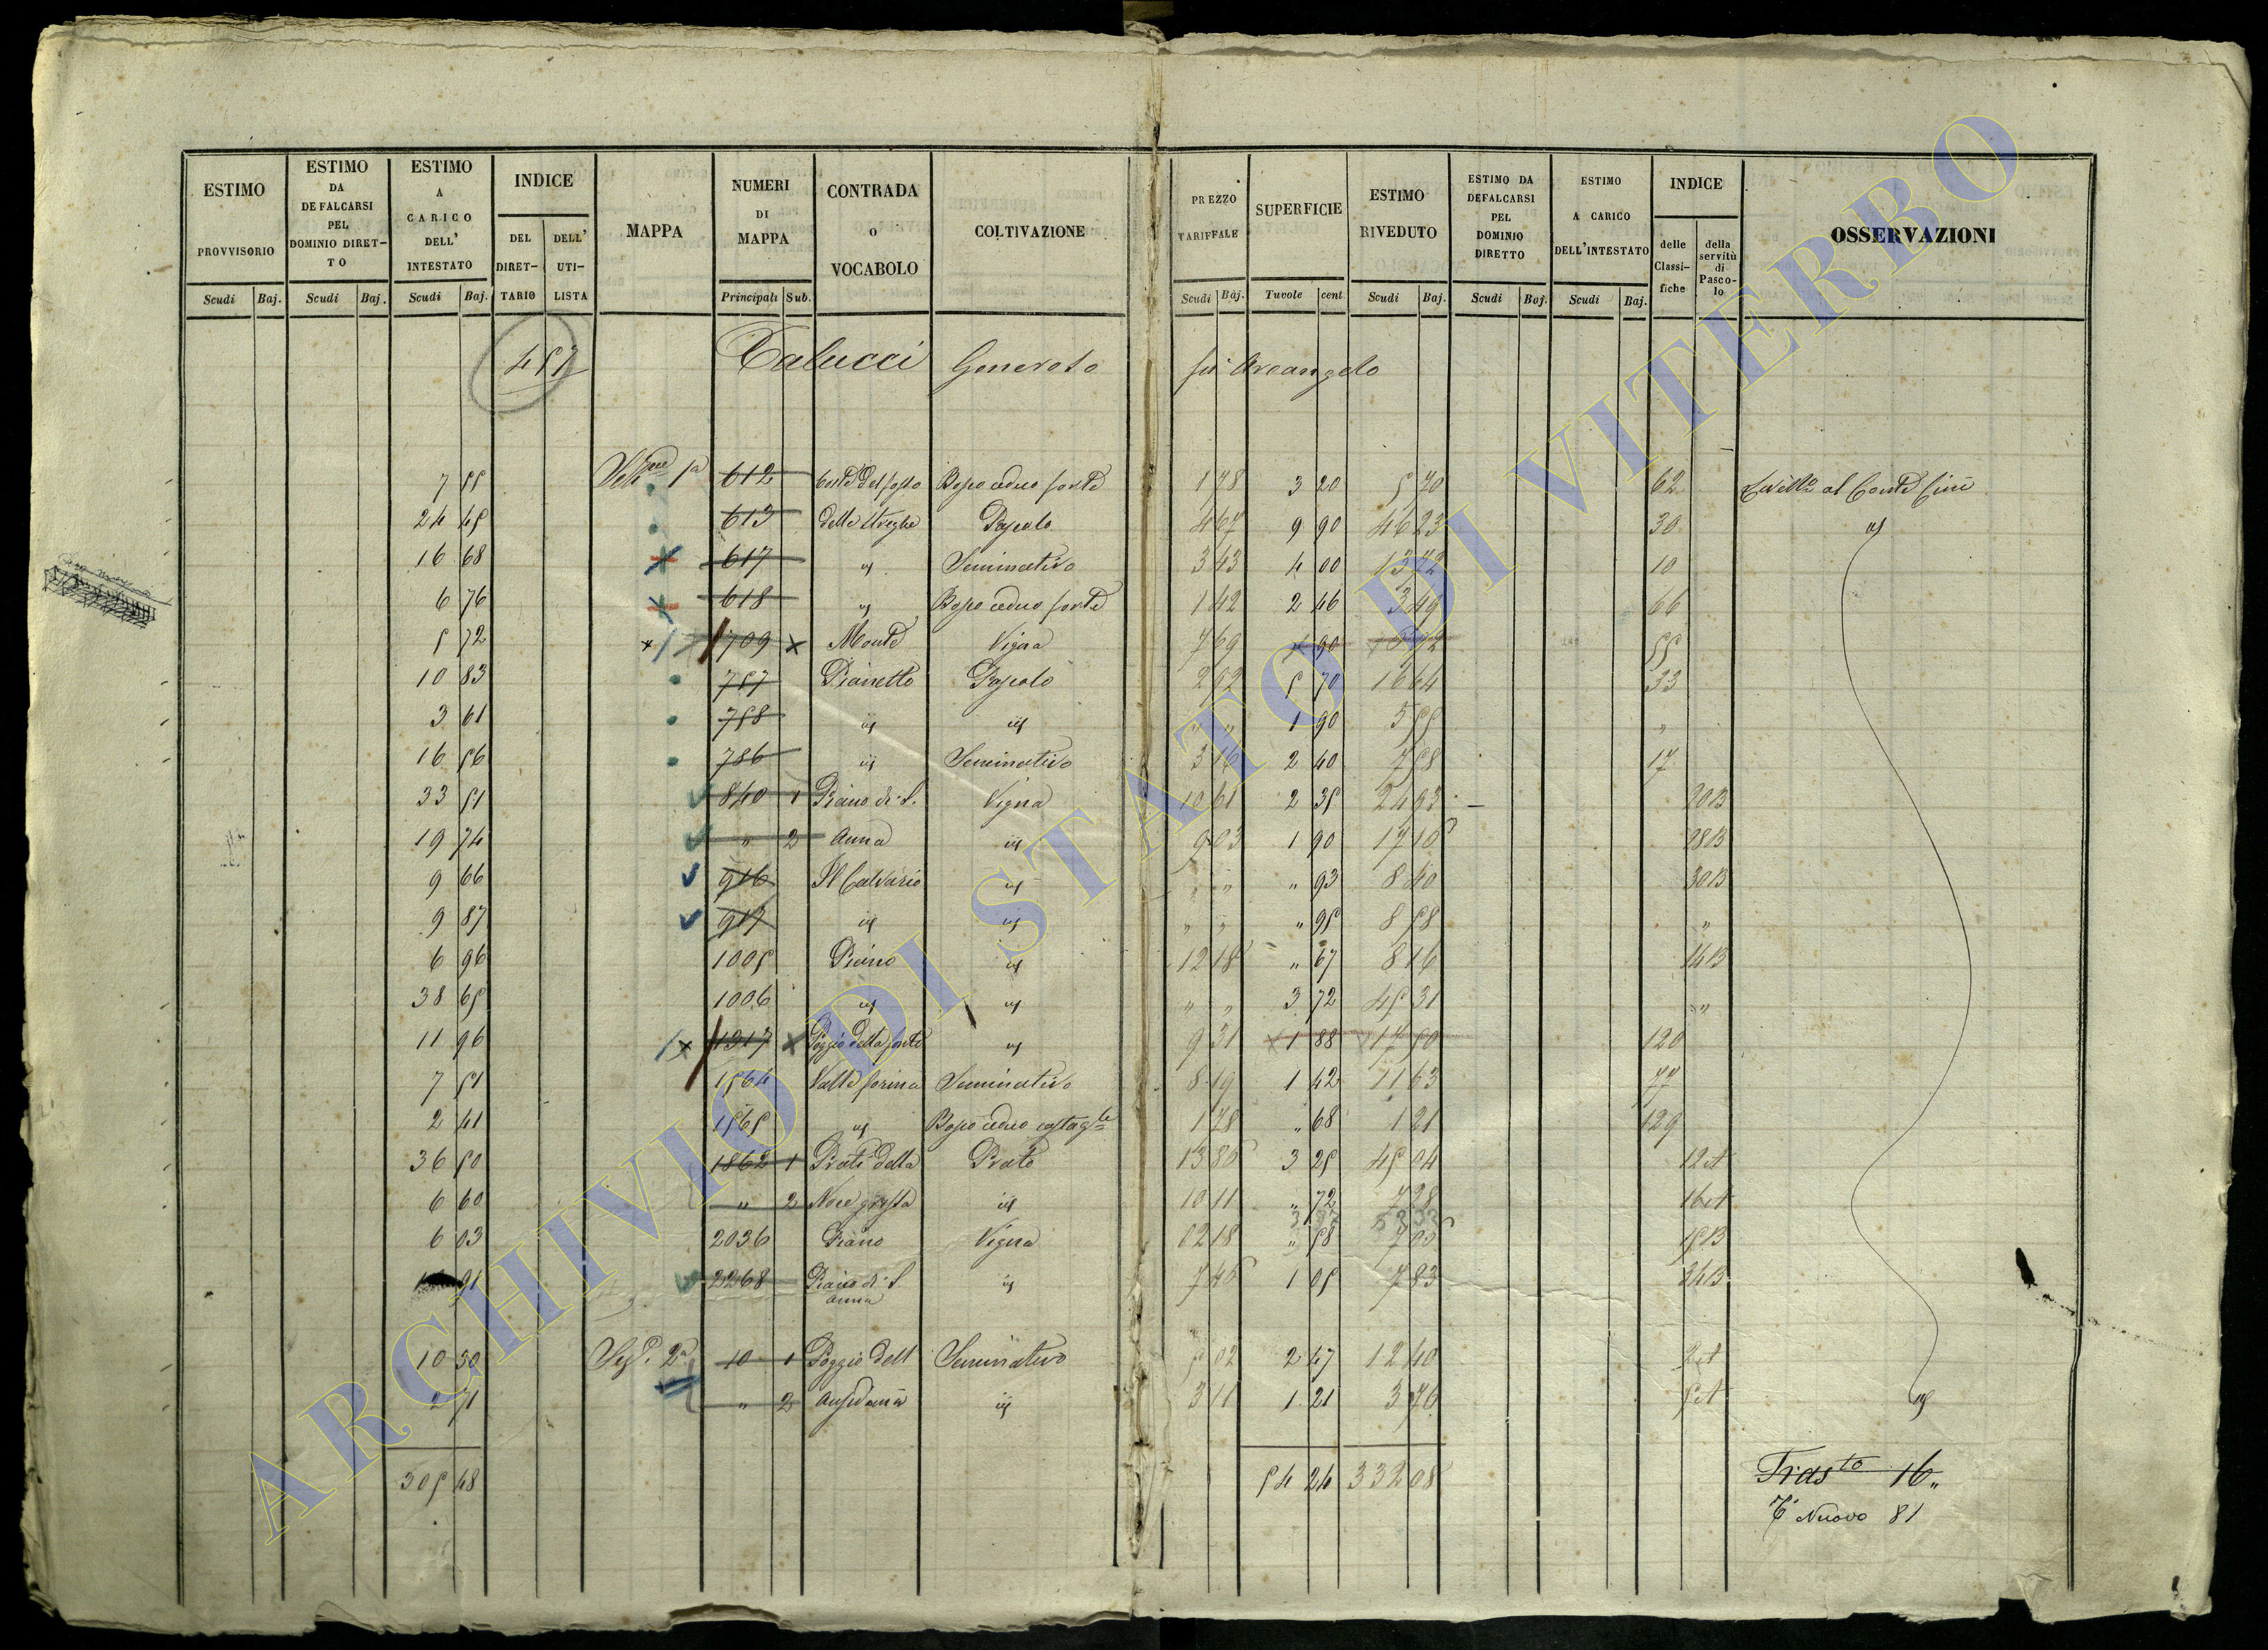 ESTIMO PROVVISORIO Scudi Baj.
ESTIMO DA DEFALCARSI PEL DOMINIO DIRETTO Scudi Baj.
ESTIMO A CARICO DELL' INTESTATO Scudi Baj.
INDICE DEL DIRETTARIO DELL' UTILISTA
MAPPA
NUMERI DI MAPPA Principali Sub.
CONTRADA O VOCABOLO
COLTIVAZIONE
PREZZO TARIFFALE Scudi Baj.
SUPERFICIE Tavole cent
ESTIMO RIVEDUTO Scudi Baj.
ESTIMO DA DEFALCARSI PEL DOMINIO DIRETTO Scudi Baj.
ESTIMO A CARICO DELL'INTESTATO Scudi Baj.
INDICE delle Classifiche della servitù di Pascolo
OSSERVAZIONI
457 Calucci Generoso fu Arcangelo
7 55 1a 612 Bosco ceduo forte 1 78 3 20 5 70 62 al Conte
24 45 613 delle Streghe Pascolo 4 67 9 90 46 23 30 id
16 68 617 id Seminativo 3 43 4 00 13 72 10
6 76 618 id Bosco ceduo forte 1 42 2 46 3 49 66
5 72 709 Monte Vigna 7 69 90 55
10 83 757 Pianetto Pascolo 2 92 5 70 16 64 33
3 61 758 id id " " 1 90 5 55 "
16 56 786 id Seminativo 3 16 2 40 7 58 17
33 51 840 1 Piano di S. Vigna 10 61 2 35 24 93 20B
19 74 " 2 Anna id 9 03 1 90 17 16 28B
9 66 916 Il Calvario id " " " 93 8 40 30B
9 87 917 id id " " " 95 8 58 "
6 96 1005 Piano id 12 18 " 67 8 16 14B
38 65 1006 id id " " 3 72 45 31 "
11 96 1317 Poggio della forte id 9 31 1 88 17 50 120
7 51 1564 Valle forina Seminativo 8 19 1 42 11 63 77
2 41 1565 id Bosco ceduo castagle 1 78 " 68 1 21 129
36 50 1862 1 Prati della Prato 13 86 3 25 45 04 12A
6 60 " 2 Noce grossa id 10 11 " 72 7 28 16A
6 03 2036 Piano Vigna 12 18 " 58 7 06 15B
91 2268 Piano di S. Anna id 7 46 1 05 7 83 24B
10 30 Sez. 2a 10 1 Poggio dell Seminativo 5 02 2 47 12 40 2A
2 71 " 2 id 3 11 1 21 3 76 5A id
305 48 54 24 332 08
Trasto 16
T Nuovo 81
ARCHIVIO DI STATO DI VITERBO